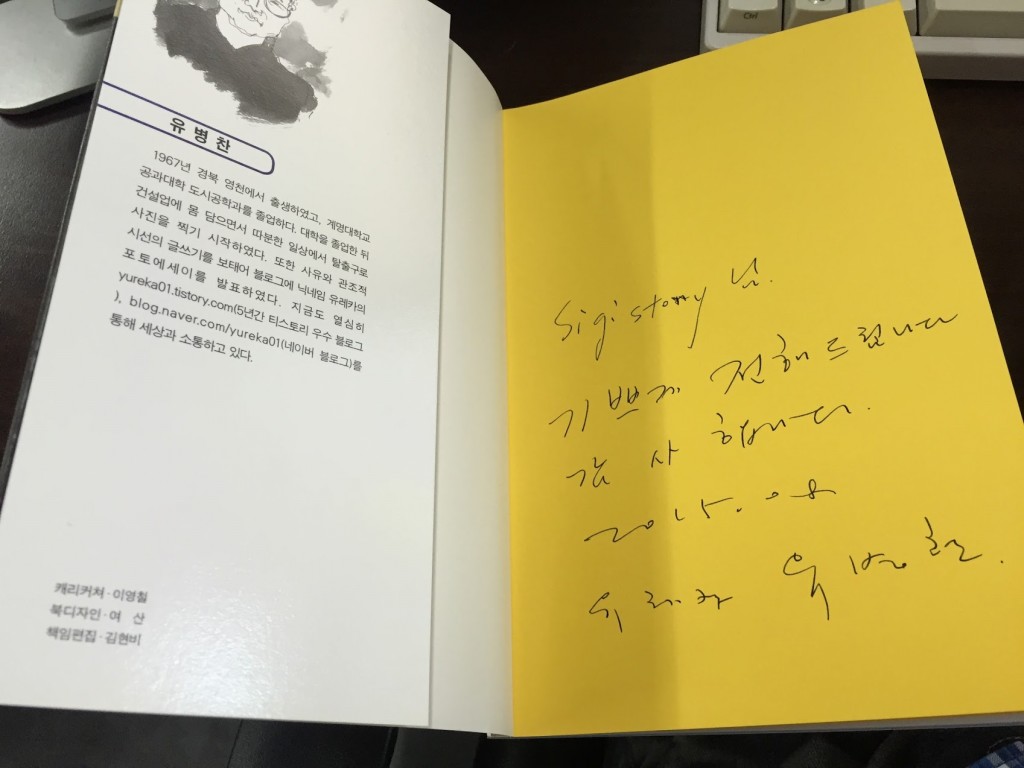 유병찬
1967년 경북 영천에서 출생하였고, 계명대학교
공과대학 도시공학과를 졸업하다. 대학을 졸업한 뒤
건설업에 몸 담으면서 따분한 일상에서 탈출구로
사진을 찍기 시작하였다. 또한 사유와 관조적
시선의 글쓰기를 보태어 블로그에 닉네임 유레카의
포토에세이를 발표하였다. 지금도 열심히
yureka01.tistory.com(5년간 티스토리 우수 블로그
), blog.naver.com/yureka01(네이버 블로그)를
통해 세상과 소통하고 있다.
캐리커쳐·이영철
북디자인·여 산
책임편집·김현비
Sigistory 님.
기쁘게 전해드립니다
감사합니다.
2015. 08
유레카 유병찬.
Ctrl